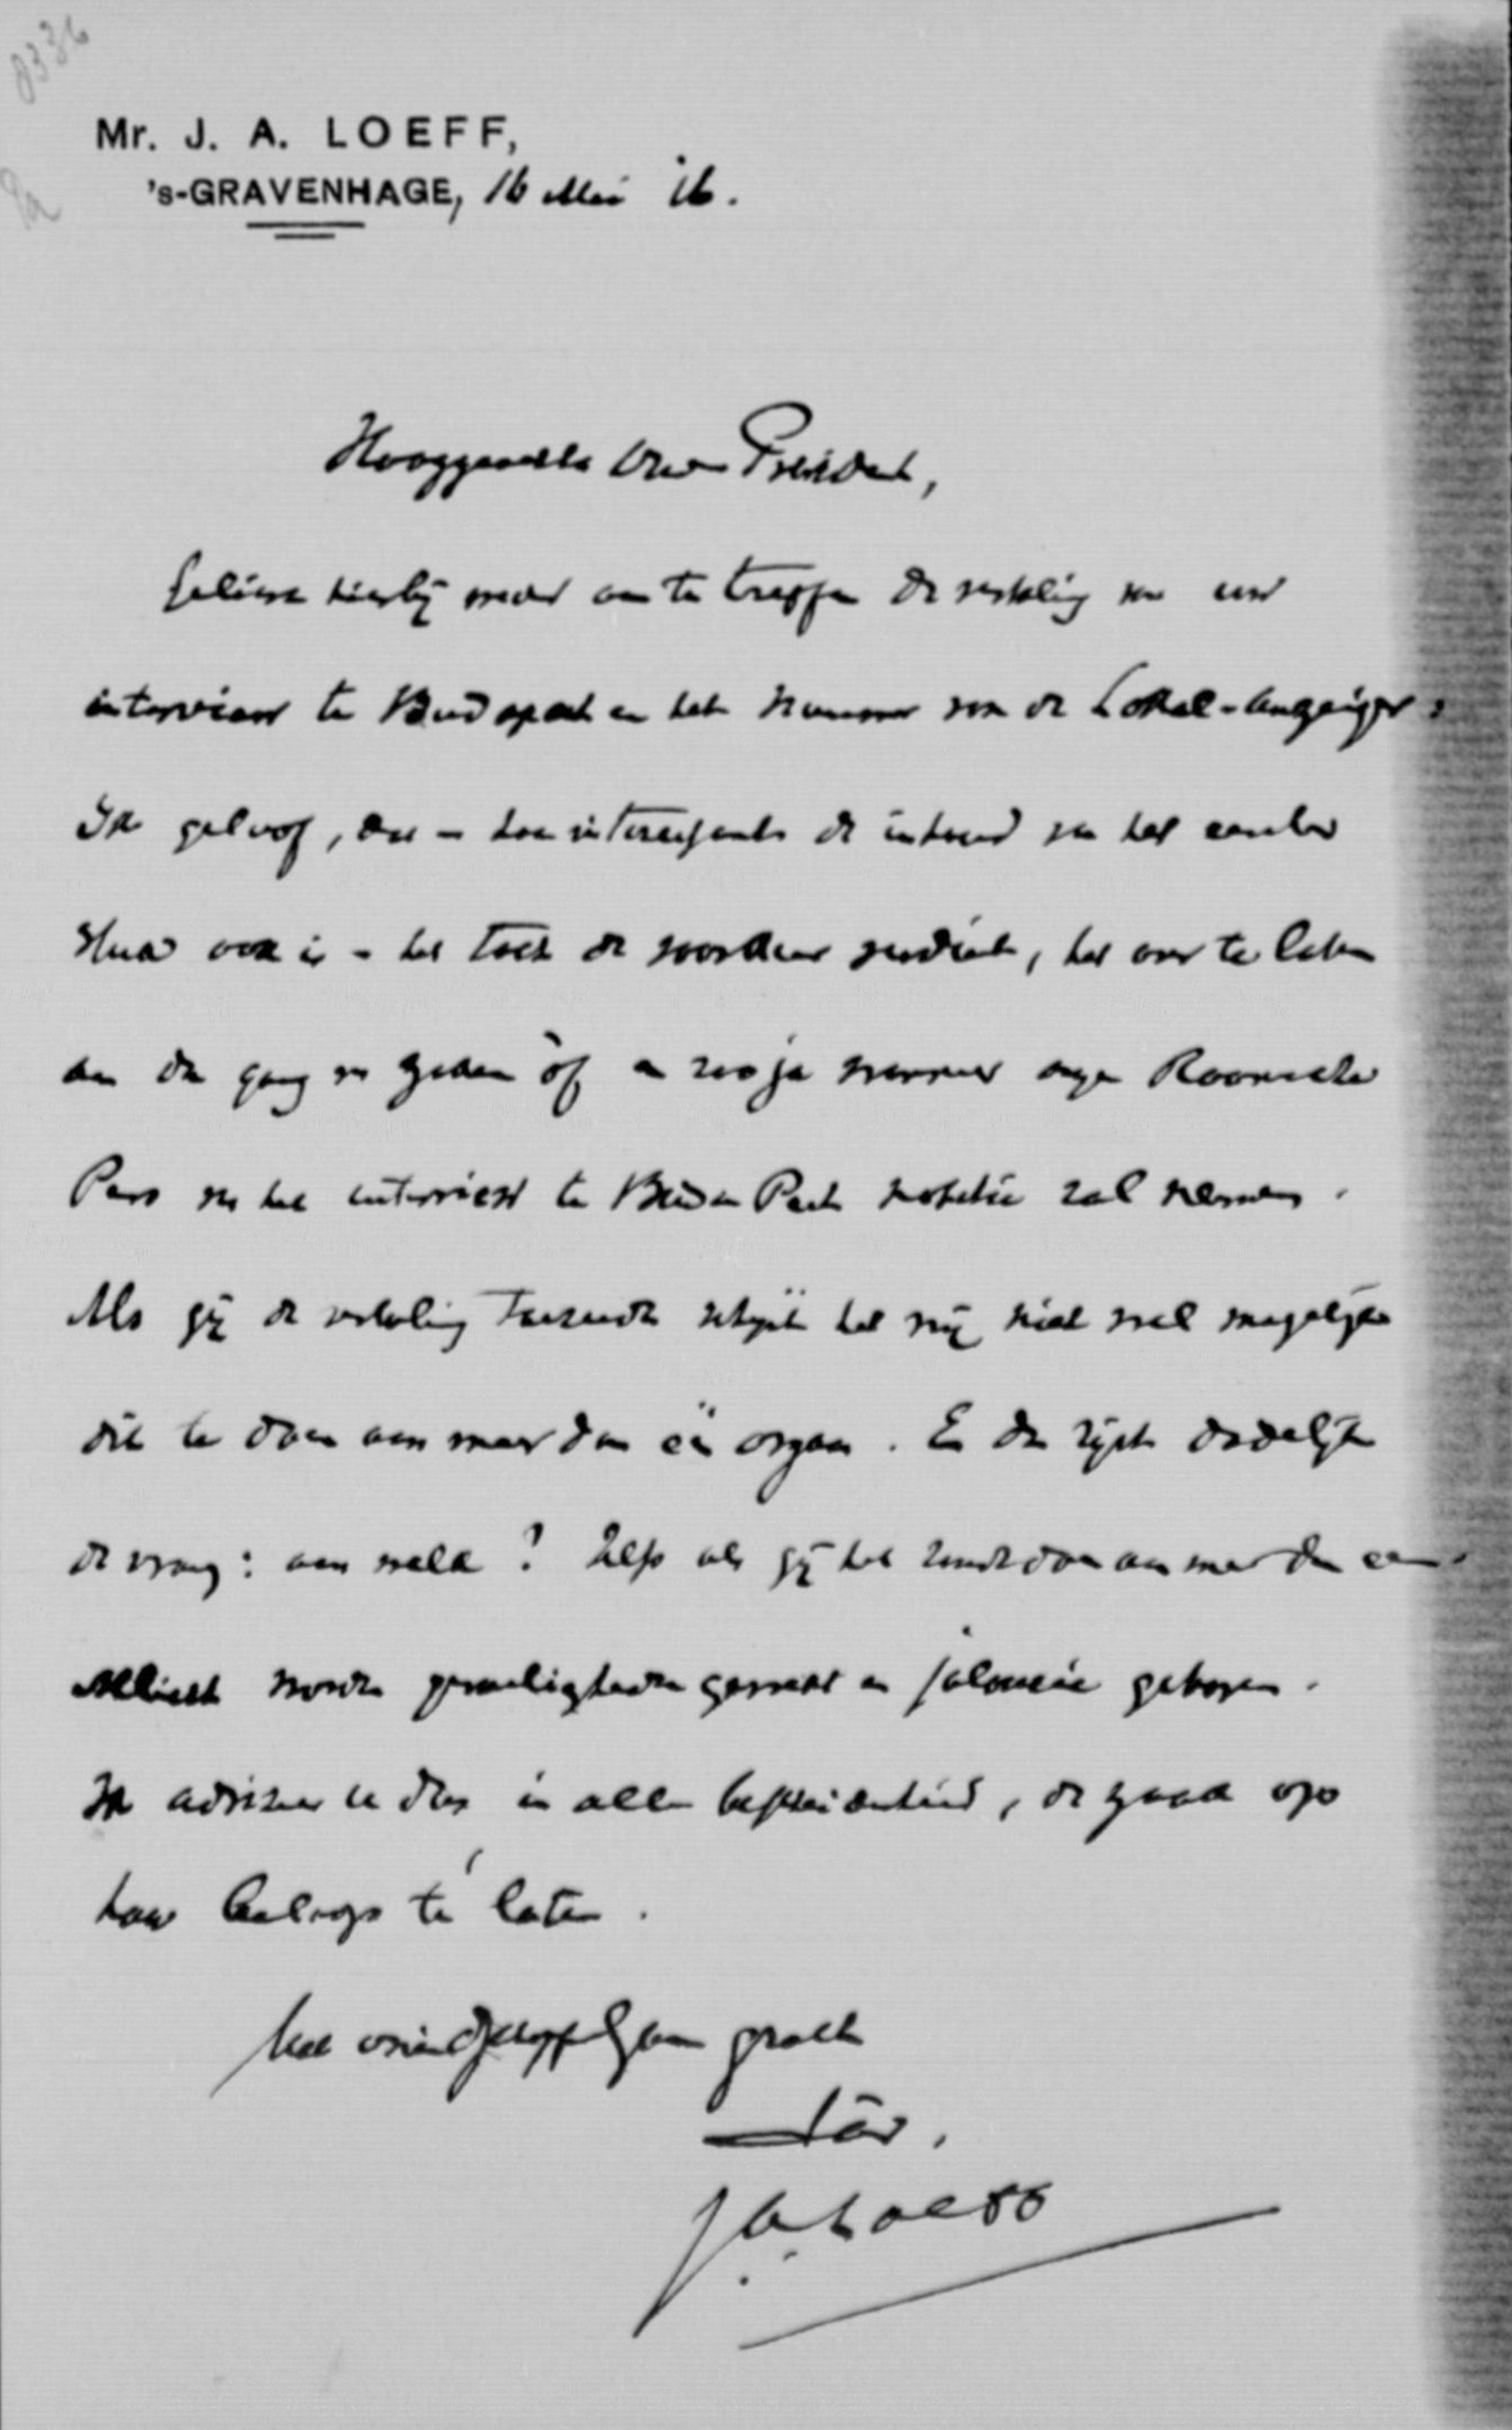 8336
Mr. J. A. LOEFF,
's-GRAVENHAGE, 16 Mei 16.
Hooggeachte Heer President,
Gelieve hierbij weder aan te treffen de vertaling van uw
interview te Budapest en het nummer van de Lokal-Anzeiger.
Ik geloof, dat – hoe interessant de inhoud van het eerste
stuk ook is – het toch de voorkeur verdient, het over te laten
aan den gang van zaken òf en zoo ja wanneer onze Roomsche
Pers van het interview te Buda Pest notitie zal nemen.
Als gij de vertaling toezendt schijnt het mij niet wel mogelijk
dit te doen aan meer dan één orgaan. En dan rijst dadelijk
de vraag: aan welk? Zelfs als gij het zendt aan meer dan een
allicht worden gevoeligheden gewekt en jalousie geboren.
Ik adviseer u dus in alle bescheidenheid, de zaak op
haar beloop te laten.
Met vriendschappelijken groet
t.à.v.
JALoeff